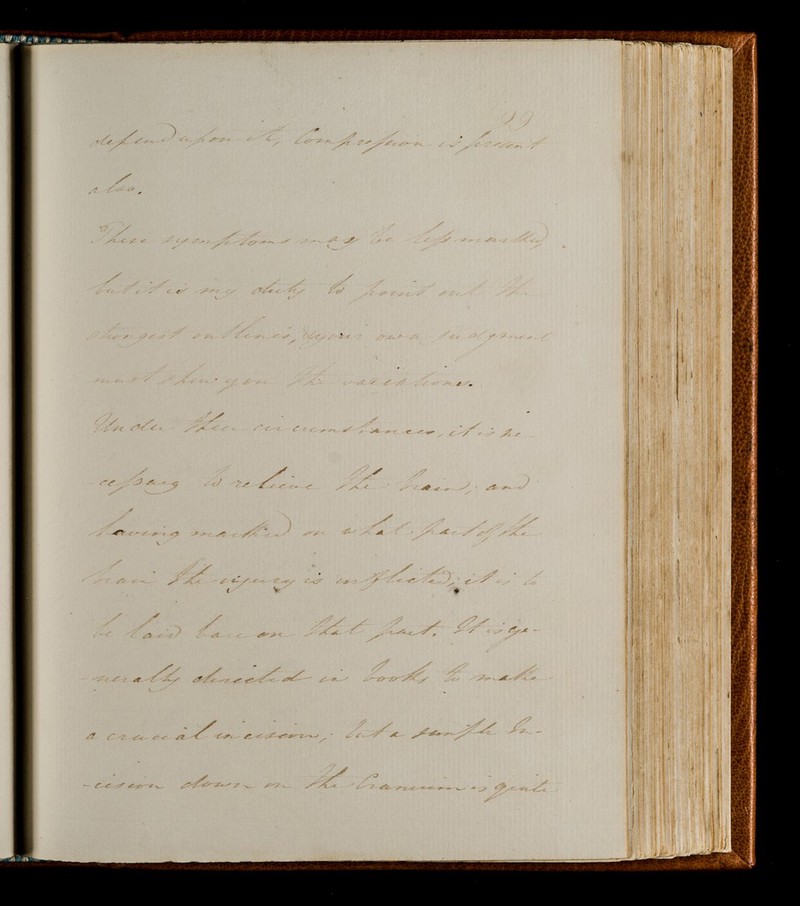 99
depend upon it, Compression is present
also.
These symptoms may be less marked,
but it is my duty to point out the
strongest outlines, your own judgment
must shew you the variations.
Under these circumstances, it is ne-
-cessary to relieve the brain; and
having marked on what part of the
brain the injury is inflicted; it is to
be laid bare on that part. It is ge-
-nerally directed in books to make
a crucial incision; but a simple In-
-cision down on the Cranium is quite